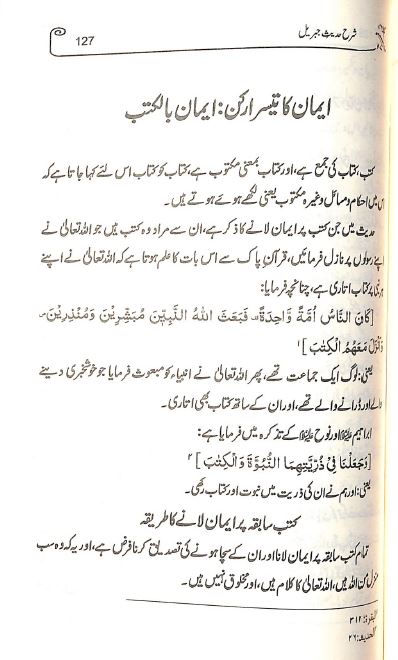 شرح حدیث جبریل
127
ایمان کا تیسرا رکن: ایمان بالکتب
کتب، کتاب کی جمع ہے، اور کتاب بمعنی مکتوب ہے، کتاب کو کتاب اس لئے کہا جاتا ہے کہ
اس میں احکام و مسائل وغیرہ مکتوب یعنی لکھے ہوئے ہوتے ہیں۔
حدیث میں جن کتب پر ایمان لانے کا ذکر ہے، ان سے مراد وہ کتب ہیں جو اللہ تعالیٰ نے
اپنے رسولوں پر نازل فرمائیں، قرآن پاک سے اس بات کا علم ہوتا ہے کہ اللہ تعالیٰ نے اپنے
ہر نبی پر کتاب اتاری ہے، چنانچہ فرمایا:
[كَانَ النَّاسُ اُمَّةً وَّاحِدَةً۝ فَبَعَثَ اللّٰهُ النَّبِيّٖنَ مُبَشِّرِيْنَ وَمُنْذِرِيْنَ۝
وَاَنْزَلَ مَعَهُمُ الْكِتٰبَ] ¹
یعنی: لوگ ایک جماعت تھے، پھر اللہ تعالیٰ نے انبیاء کو مبعوث فرمایا جو خوشخبری دینے
والے اور ڈرانے والے تھے، اور ان کے ساتھ کتاب بھی اتاری۔
ابراہیم علیہ السلام اور نوح علیہ السلام کے تذکرہ میں فرمایا ہے:
[وَجَعَلْنَا فِيْ ذُرِّيَّتِهِمَا النُّبُوَّةَ وَالْكِتٰبَ] ²
یعنی: اور ہم نے ان کی ذریت میں نبوت اور کتاب رکھی۔
کتب سابقہ پر ایمان لانے کا طریقہ
تمام کتب سابقہ پر ایمان لانا اور ان کے سچا ہونے کی تصدیق کرنا فرض ہے، اور یہ کہ وہ سب
منزل من اللہ ہیں، اللہ تعالیٰ کا کلام ہیں، اور مخلوق نہیں ہیں۔
البقرة: ۲۱۳
الحدید: ۲۶